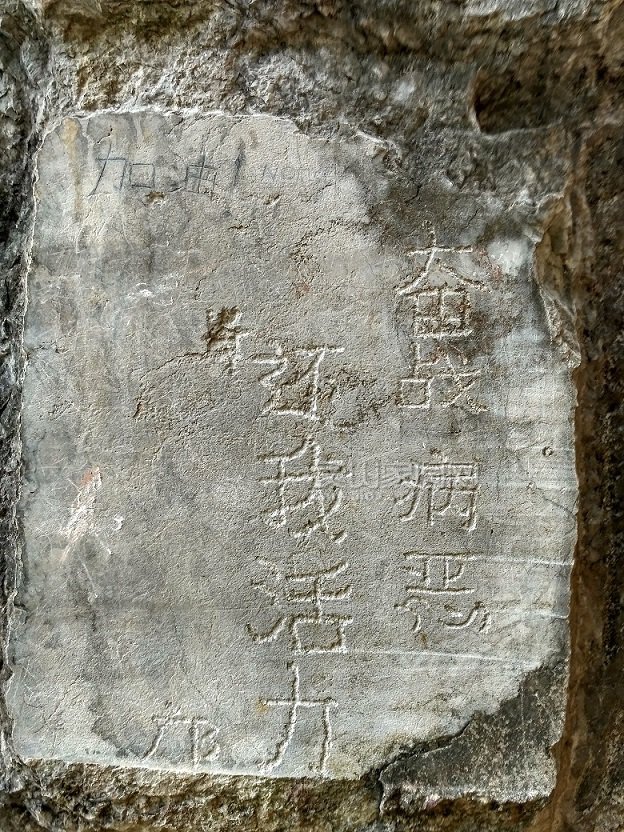 奋战病恶
还我活力
加油!